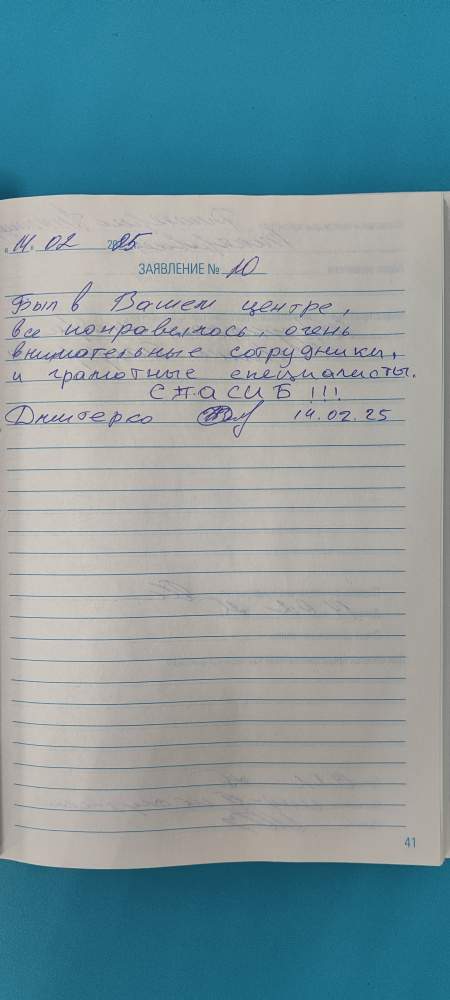 « 14. 02 2025
ЗАЯВЛЕНИЕ № 10
Был в Вашем центре,
все понравилось, очень
внимательные сотрудники,
и грамотные специалисты.
СПАСИБ !!!
14.02.25
41